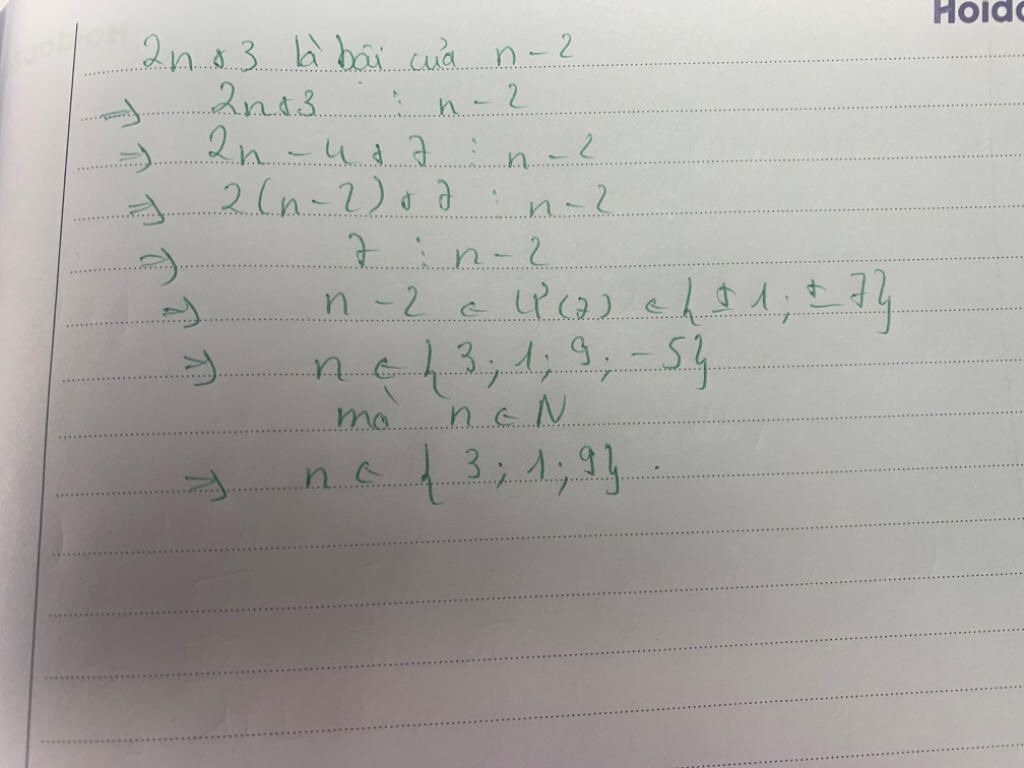 Hoidc
2n + 3 là bội của n - 2
=> 2n+3 ⋮ n - 2
=> 2n - 4 + 7 ⋮ n - 2
=> 2(n - 2) + 7 ⋮ n - 2
=> 7 ⋮ n - 2
=> n - 2 ∈ Ư(7) ∈ { ± 1 ; ± 7}
=> n ∈ { 3 ; 1 ; 9 ; - 5}
mà n ∈ N
=> n ∈ { 3 ; 1 ; 9} .